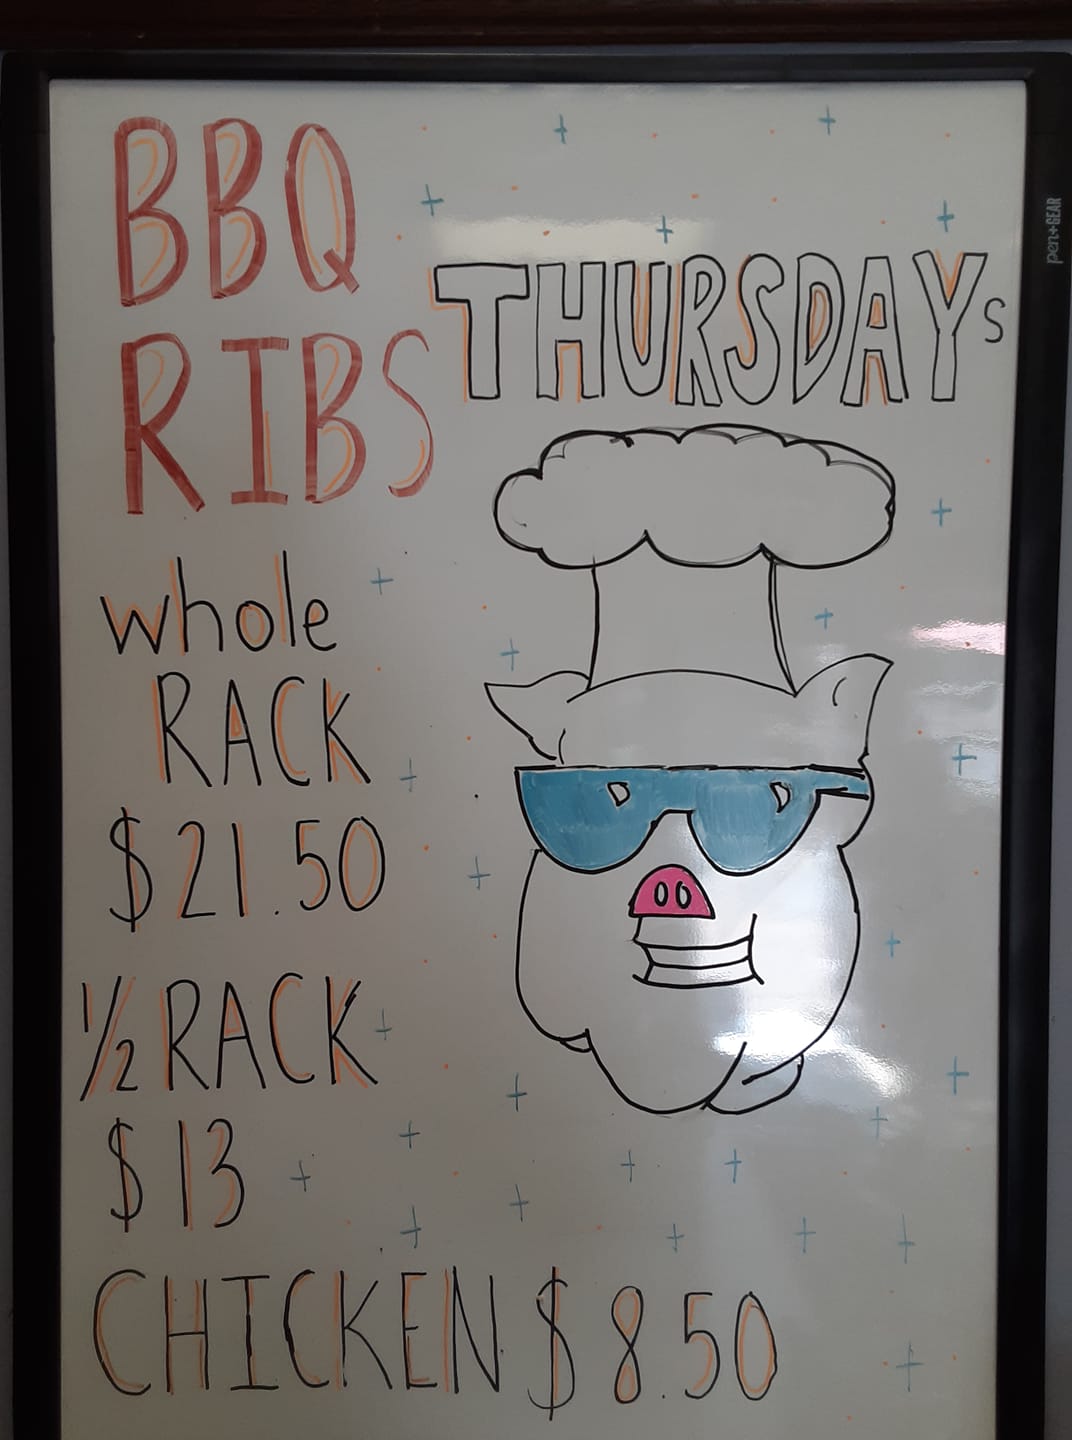 BBQ
RIBS
THURSDAYs
whole
RACK
$21.50
½ RACK
$13
CHICKEN $8.50
pen+GEAR